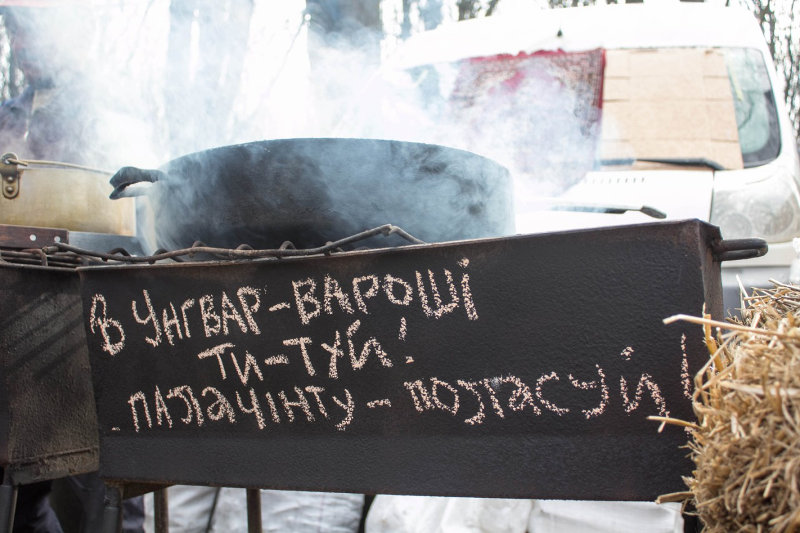 В УНГВАРІ-ВАРОШІ
ТИ-ТУЙ!
ПАЛАЧІНТУ-ПОЛАСУЙ!